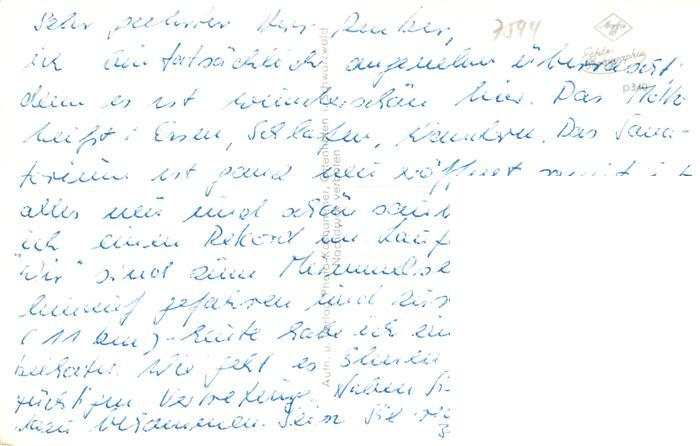 Sehr geehrter Herr Junker,
ich bin tatsächlich angenehm überrascht,
denn es ist wunderschön hier. Das Motto
heißt: Essen, Schlafen, Wandern. Das Sana-
torium ist ganz neu eröffnet somit i
alles neu und schön saub
ich einen Rekord im Lauf
"Wir" sind zum Mummelse
hinauf gefahren und zur
(11 km) - heute habe ich ein
Wie geht es Ihnen
tüchtigen Vertretung. Haben Si
bekommen. Seien Sie
7544
Agfa
Echte
Photographie
p310
Aufn. u. Verlag Photo-Kargammer, Ottenhöfen i. Schwarzwald
Nachdruck verboten